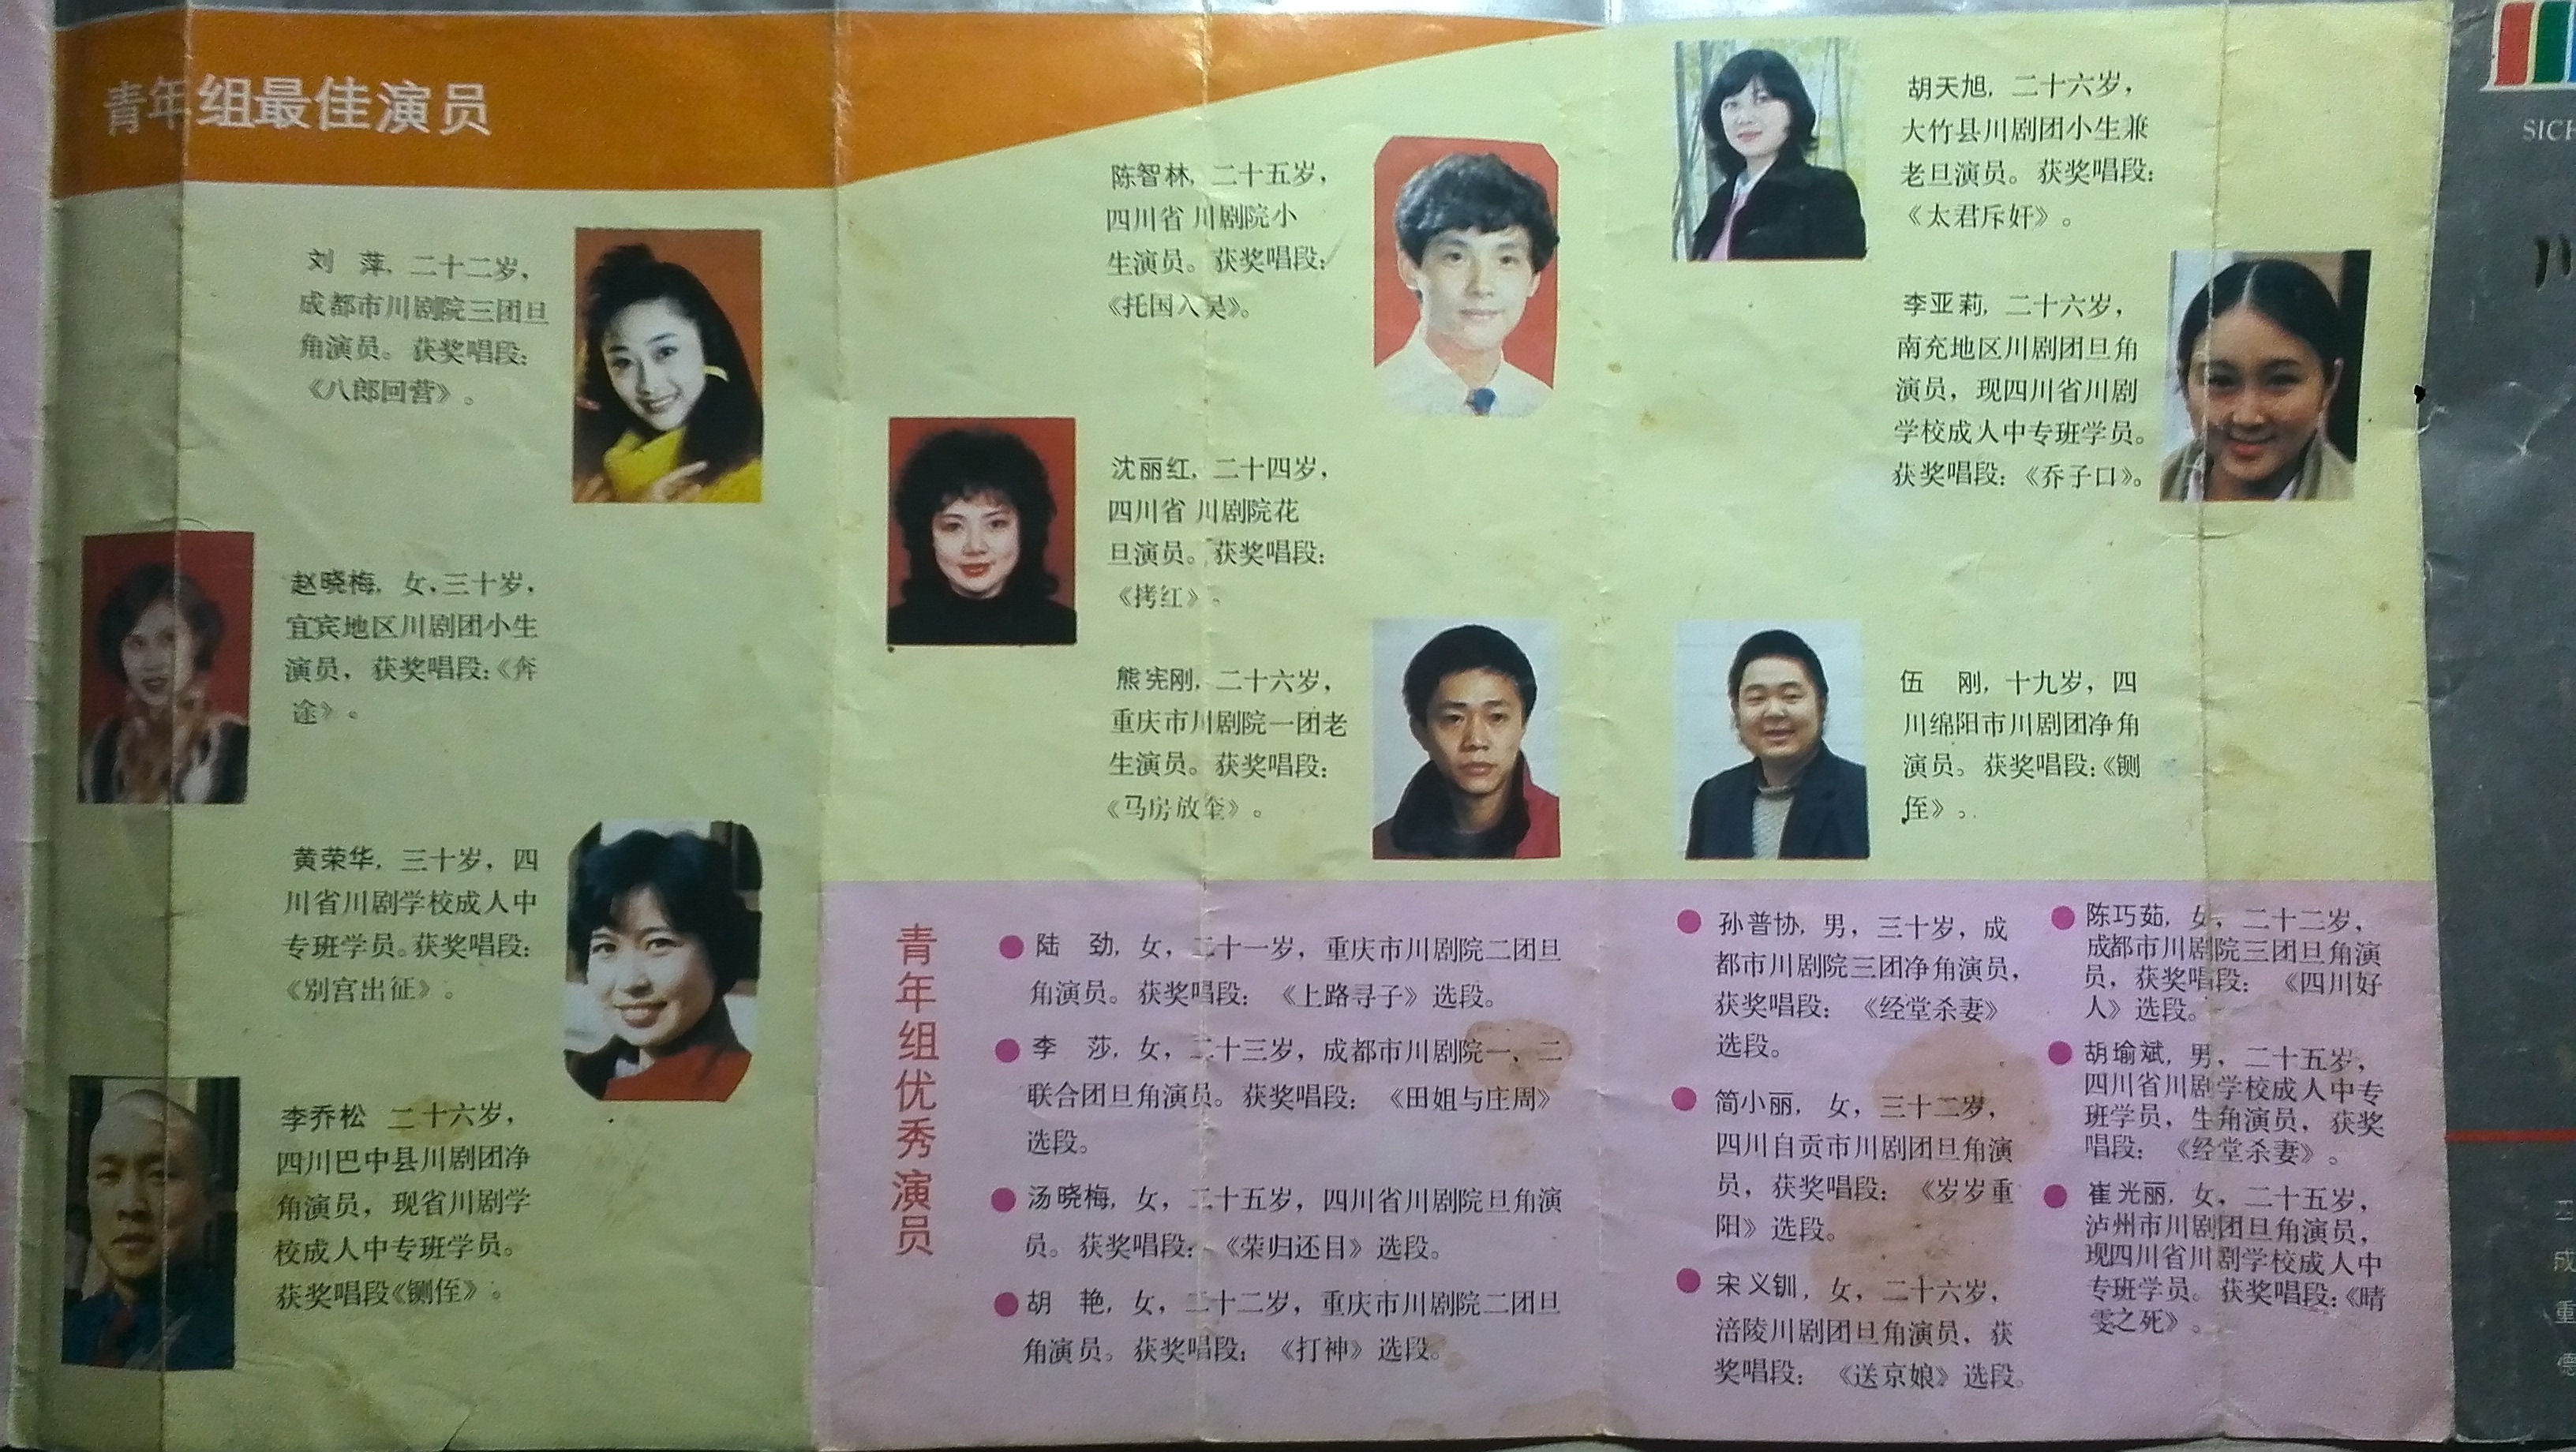 青年组最佳演员
刘 萍，二十二岁，
成都市川剧院三团旦
角演员。获奖唱段：
《八郎回营》。
赵晓梅，女，三十岁，
宜宾地区川剧团小生
演员，获奖唱段：《奔
途》。
黄荣华，三十岁，四
川省川剧学校成人中
专班学员。获奖唱段：
《别宫出征》。
李乔松 二十六岁，
四川巴中县川剧团净
角演员，现省川剧学
校成人中专班学员。
获奖唱段《铡侄》。
陈智林，二十五岁，
四川省 川剧院小
生演员。获奖唱段：
《托国入吴》。
沈丽红，二十四岁，
四川省 川剧院花
旦演员。获奖唱段：
《拷红》。
熊宪刚，二十六岁，
重庆市川剧院一团老
生演员。获奖唱段：
《马房放奎》。
胡天旭，二十六岁，
大竹县川剧团小生兼
老旦演员。获奖唱段：
《太君斥奸》。
李亚莉，二十六岁，
南充地区川剧团旦角
演员，现四川省川剧
学校成人中专班学员。
获奖唱段：《乔子口》。
伍 刚，十九岁，四
川绵阳市川剧团净角
演员。获奖唱段：《铡
侄》。
青年组优秀演员
陆 劲，女，二十一岁，重庆市川剧院二团旦
角演员。获奖唱段：《上路寻子》选段。
李 莎，女，二十三岁，成都市川剧院一、二
联合团旦角演员。获奖唱段：《田姐与庄周》
选段。
汤晓梅，女，二十五岁，四川省川剧院旦角演
员。获奖唱段：《荣归还目》选段。
胡 艳，女，二十二岁，重庆市川剧院二团旦
角演员。获奖唱段：《打神》选段。
孙普协，男，三十岁，成
都市川剧院三团净角演员，
获奖唱段：《经堂杀妻》
选段。
简小丽，女，三十二岁，
四川自贡市川剧团旦角演
员，获奖唱段：《岁岁重
阳》选段。
宋义钏，女，二十六岁，
涪陵川剧团旦角演员，获
奖唱段：《送京娘》选段。
陈巧茹，女，二十二岁，
成都市川剧院三团旦角演
员，获奖唱段：《四川好
人》选段。
胡瑜斌，男，二十五岁，
四川省川剧学校成人中专
班学员，生角演员，获奖
唱段：《经堂杀妻》。
崔光丽，女，二十五岁，
泸州市川剧团旦角演员，
现四川省川剧学校成人中
专班学员。获奖唱段：《晴
雯之死》。
SICH
川
成
重
德